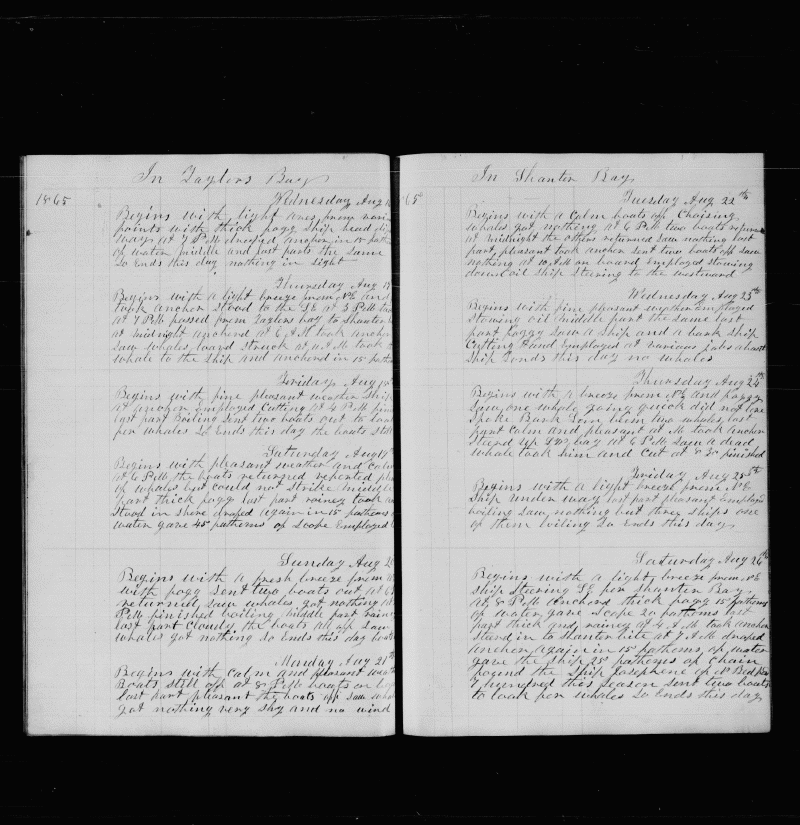 In Taylors Bay
1865
Wednesday Aug 16
Begins with light aires from vari
points with thick fogg ship head di
ways at 7 P.M. droped anchor in 15 fath
of water middle and last parts the same
So Ends this day nothing in sight
Thursday Aug 17
Begins with a light breeze from NE and
took anchor stood to the SE at 3 P.M.
at 7 P.M. passed from Taylors bay to Shanter
at midnight anchored at 6 A.M. took anchor
Saw whales, lowered struck at 11 A.M. took
whale to the ship and anchored in 15 fath
Friday Aug 18th
Begins with fine pleasant weather Ship
at anchor Employed Cutting at 4 P.M. fini
last part boiling sent two boats out to look
for whales So Ends this day the boats still
Saturday Aug 19th
Begins with pleasant weather and calm
at 6 P.M. the boats returned reported plenty
of whales but could not strike middle
part thick fogg last part rainey took an
stood in shore droped again in 15 fathoms
water gave 45 fathoms of Scope Employed
Sunday Aug 20
Begins with a fresh breeze from
with fogg sent two boats out at 6
returned saw whales got nothing at
P.M. finished boiling middle part rain
last part Cloudy the boats all off saw
whales got nothing so Ends this day boats
Monday Aug 21st
Begins with calm and pleasant weath
Boats still off at 8 P.M. boats on board
last part pleasant the boats off saw whal
got nothing very shy and no wind
In Shanter Bay
65
Tuesday Aug 22th
Begins with a Calm boats off Chaising
whales got nothing at 6 P.M. two boats return
at midnight the others returned saw nothing last
part pleasant took anchor sent two boats off saw
nothing at 10 A.M. on board Employed stowing
down oil Ship Steering to the westward
Wednesday Aug 23th
Begins with fine pleasant weather employed
Stowing oil middle part the same last
part foggy Saw a ship and a bark Ship
Cutting Hand Employed at various jobs about
Ship Eends this day no whales
Thursday Aug 24th
Begins with a breeze from NE and foggy
Saw one whale going quick did not lower
Spoke Bark Corn blem two whales, last
part Calm and pleasant at M. took anchor
Steerd up the bay at 6 P.M. saw a dead
whale took him and Cut at 8.30 finished
Friday Aug 25th
Begins with a light breeze from NE
Ship under way last part pleasant Employed
boiling Saw nothing but three ships one
of them boiling So Ends this day
Saturday Aug 26th
Begins with a light breeze from NE
Ship Steering SE for Shanter Bay
At 8 P.M. Anchord thick fogg 15 fathoms
of water gave Scope 20 fathoms last
part thick and rainey at 4 A.M. took anchor
steerd in to Shanter bite at 7 A.M. droped
anchor again in 15 fathoms of water
gave the ship 25 fathoms of chain
found the Ship Josephene of N Bedford
7 hundred this season Sent two boats
to look for whales So Ends this day